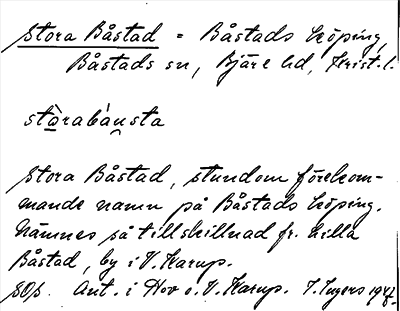 Stora Båstad = Båstads köping,
Båstads sn, Bjäre hd, Krist. l.
stòrabáusta
Stora Båstad, stundom förekom-
mande namn på Båstads köping.
Nämnes så till skillnad fr. Lilla
Båstad, by i V. Karup.
Ant. i Hov o. V. Karup. I. Ingers